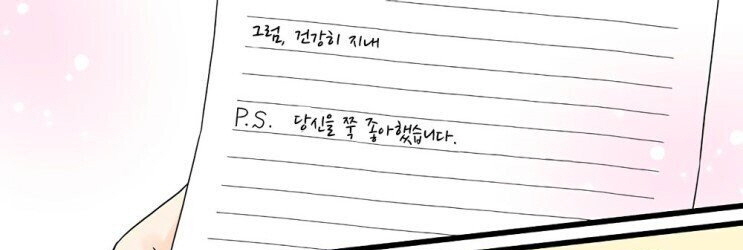 그럼, 건강히 지내
P.S. 당신을 쭉 좋아했습니다.